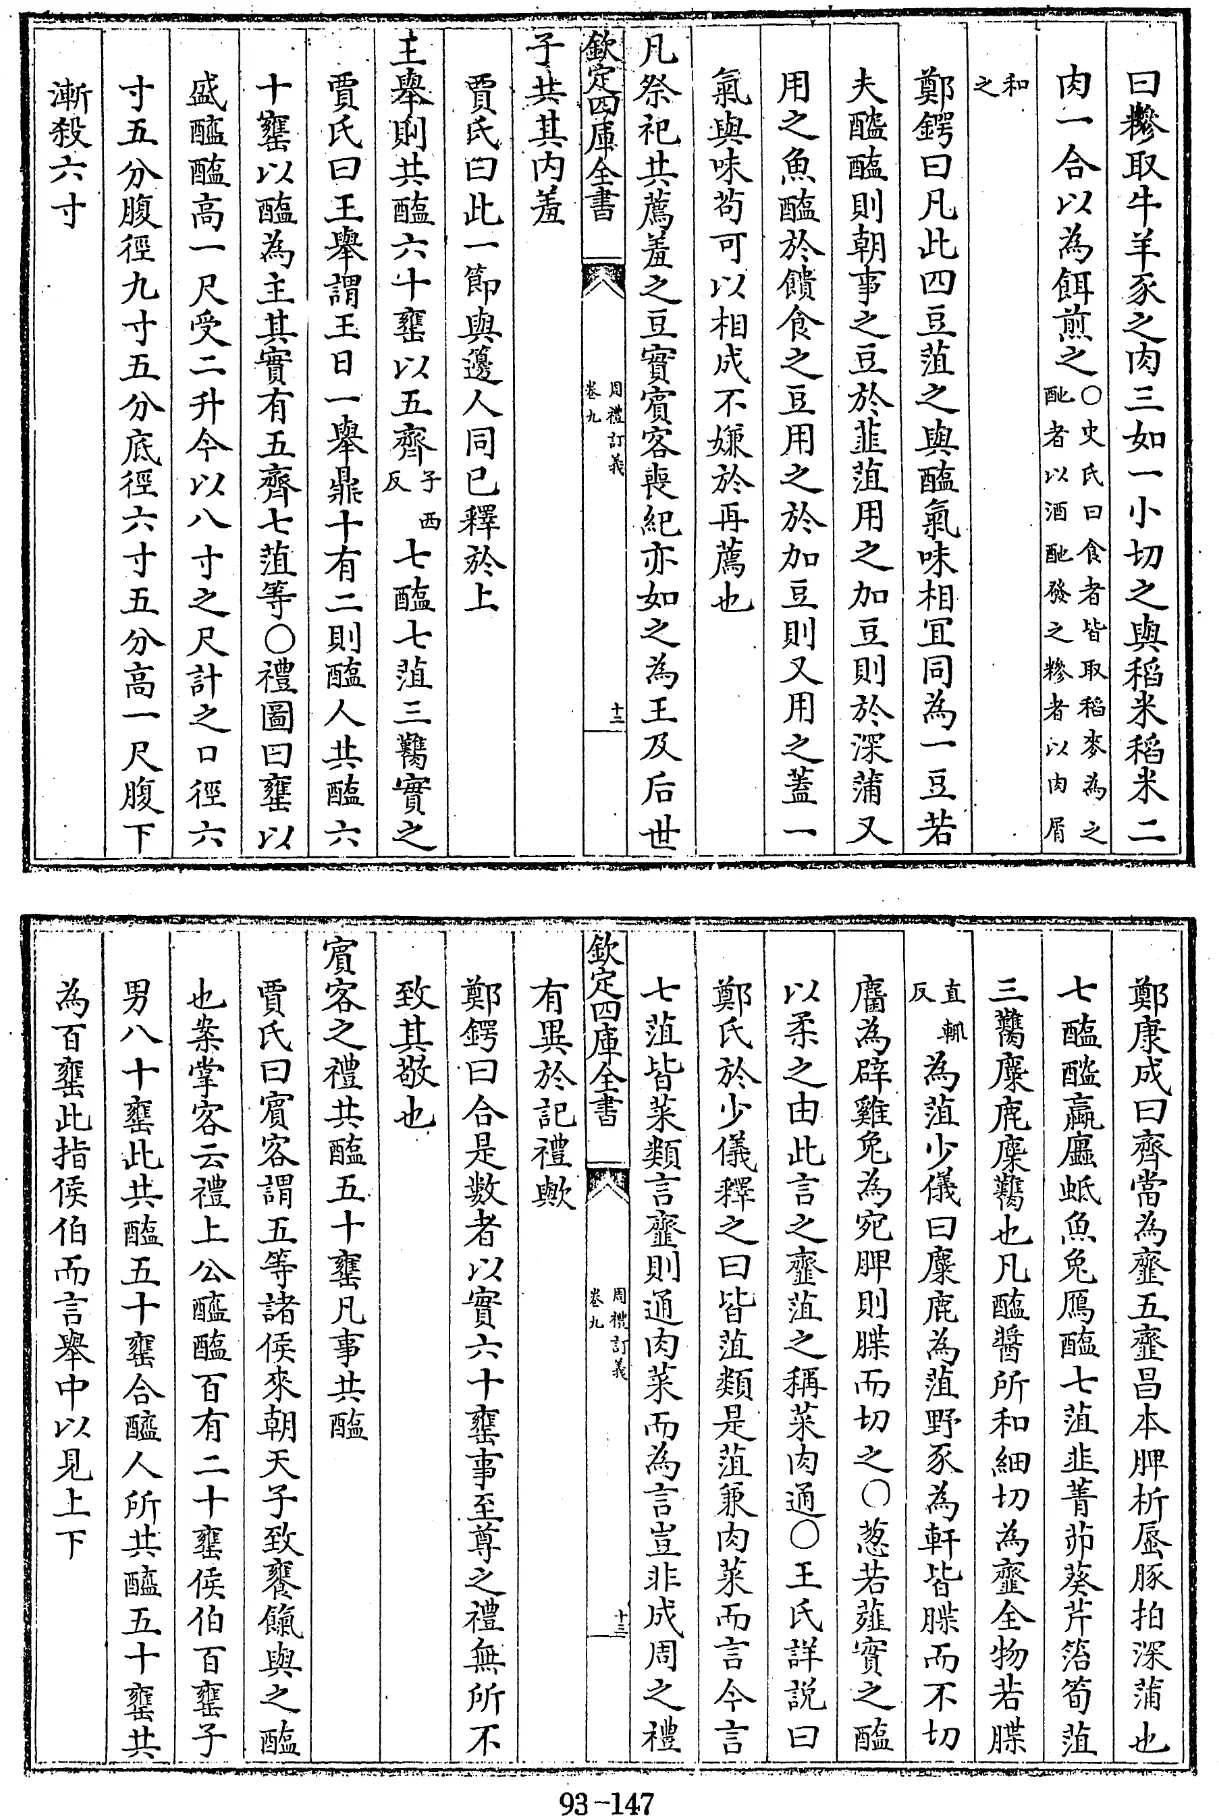 曰糝取牛羊豕之肉三如一小切之與稻米稻米二
肉一合以為餌煎之○史氏曰食者皆取稻麥為之酏者以酒酏發之糝者以肉屑
和之
鄭鍔曰凡此四豆菹之與醢氣味相宜同為一豆若
夫醓醢則朝事之豆於韮菹用之加豆則於深蒲又
用之魚醢於饋食之豆用之於加豆則又用之蓋一
氣與味茍可以相成不嫌於再薦也
凡祭祀共薦羞之豆實賓客喪紀亦如之為王及后世
欽定四庫全書
周禮訂義
卷九
十二
子共其内羞
賈氏曰此一節與籩人同已釋於上
王舉則共醢六十罋以五齊子西反七醢七菹三臡實之
賈氏曰王舉謂王日一舉鼎十有二則醢人共醢六
十罋以醢為主其實有五齊七菹等○禮圖曰罋以
盛醯醢高一尺受二升今以八寸之尺計之口徑六
寸五分腹徑九寸五分底徑六寸五分高一尺腹下
漸殺六寸
鄭康成曰齊當為齏五齏昌本脾析蜃豚拍深蒲也
七醢醓蠃蠯蚳魚兔鴈醢七菹韭菁茆葵芹箈筍菹
三臡麋鹿麇臡也凡醢醬所和細切為齏全物若䐑
直輒反為菹少儀曰麋鹿為菹野豕為軒皆䐑而不切
麕為辟雞兔為宛脾則䐑而切之○葱若薤實之醢
以柔之由此言之齏菹之稱菜肉通○王氏詳説曰
鄭氏於少儀釋之曰皆菹類是菹兼肉菜而言今言
七菹皆菜類言齏則通肉菜而為言豈非成周之禮
欽定四庫全書
周禮訂義
卷九
十三
有異於記禮歟
鄭鍔曰合是數者以實六十罋事至尊之禮無所不
致其敬也
賓客之禮共醢五十罋凡事共醢
賈氏曰賓客謂五等諸侯來朝天子致饔餼與之醢
也案掌客云禮上公醯醢百有二十罋侯伯百罋子
男八十罋此共醢五十罋合醯人所共醯五十罋共
為百罋此指侯伯而言舉中以見上下
93-147